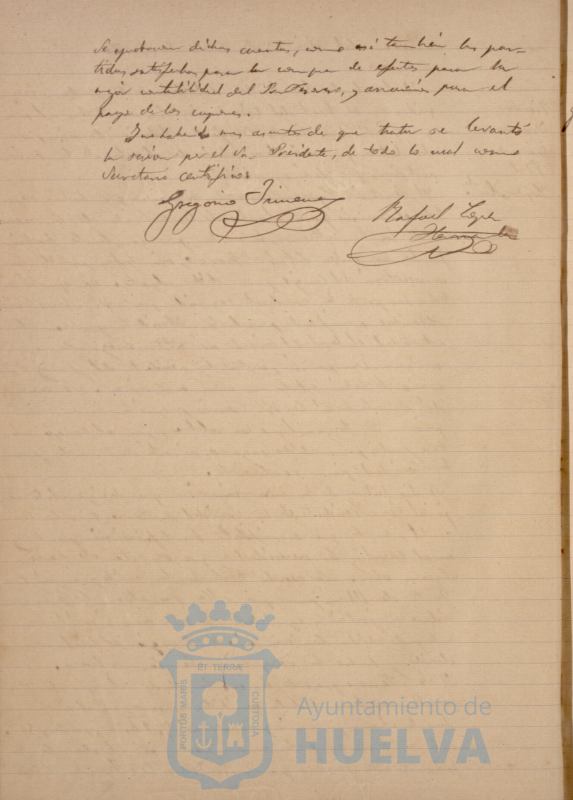 Se aprobaron dichas cuentas, como así también las par-
tidas satisfechas para la compra de efectos, para la
mejor contabilidad del Sr. Tesorero, y para el
pago de los cupones.
No habiendo mas asuntos de que tratar se levantó
la sesion por el Sr. Presidente, de todo lo cual como
Secretario certifico.
Gregorio Jimenez
Rafael
Hernandez
ET TERRÆ
PORTUS MARIS
CUSTODIA
Ayuntamiento de
HUELVA